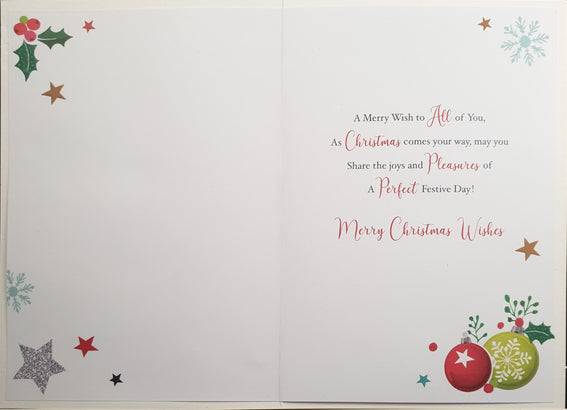 A Merry Wish to All of You,
As Christmas comes your way, may you
Share the joys and Pleasures of
A Perfect Festive Day!
Merry Christmas Wishes